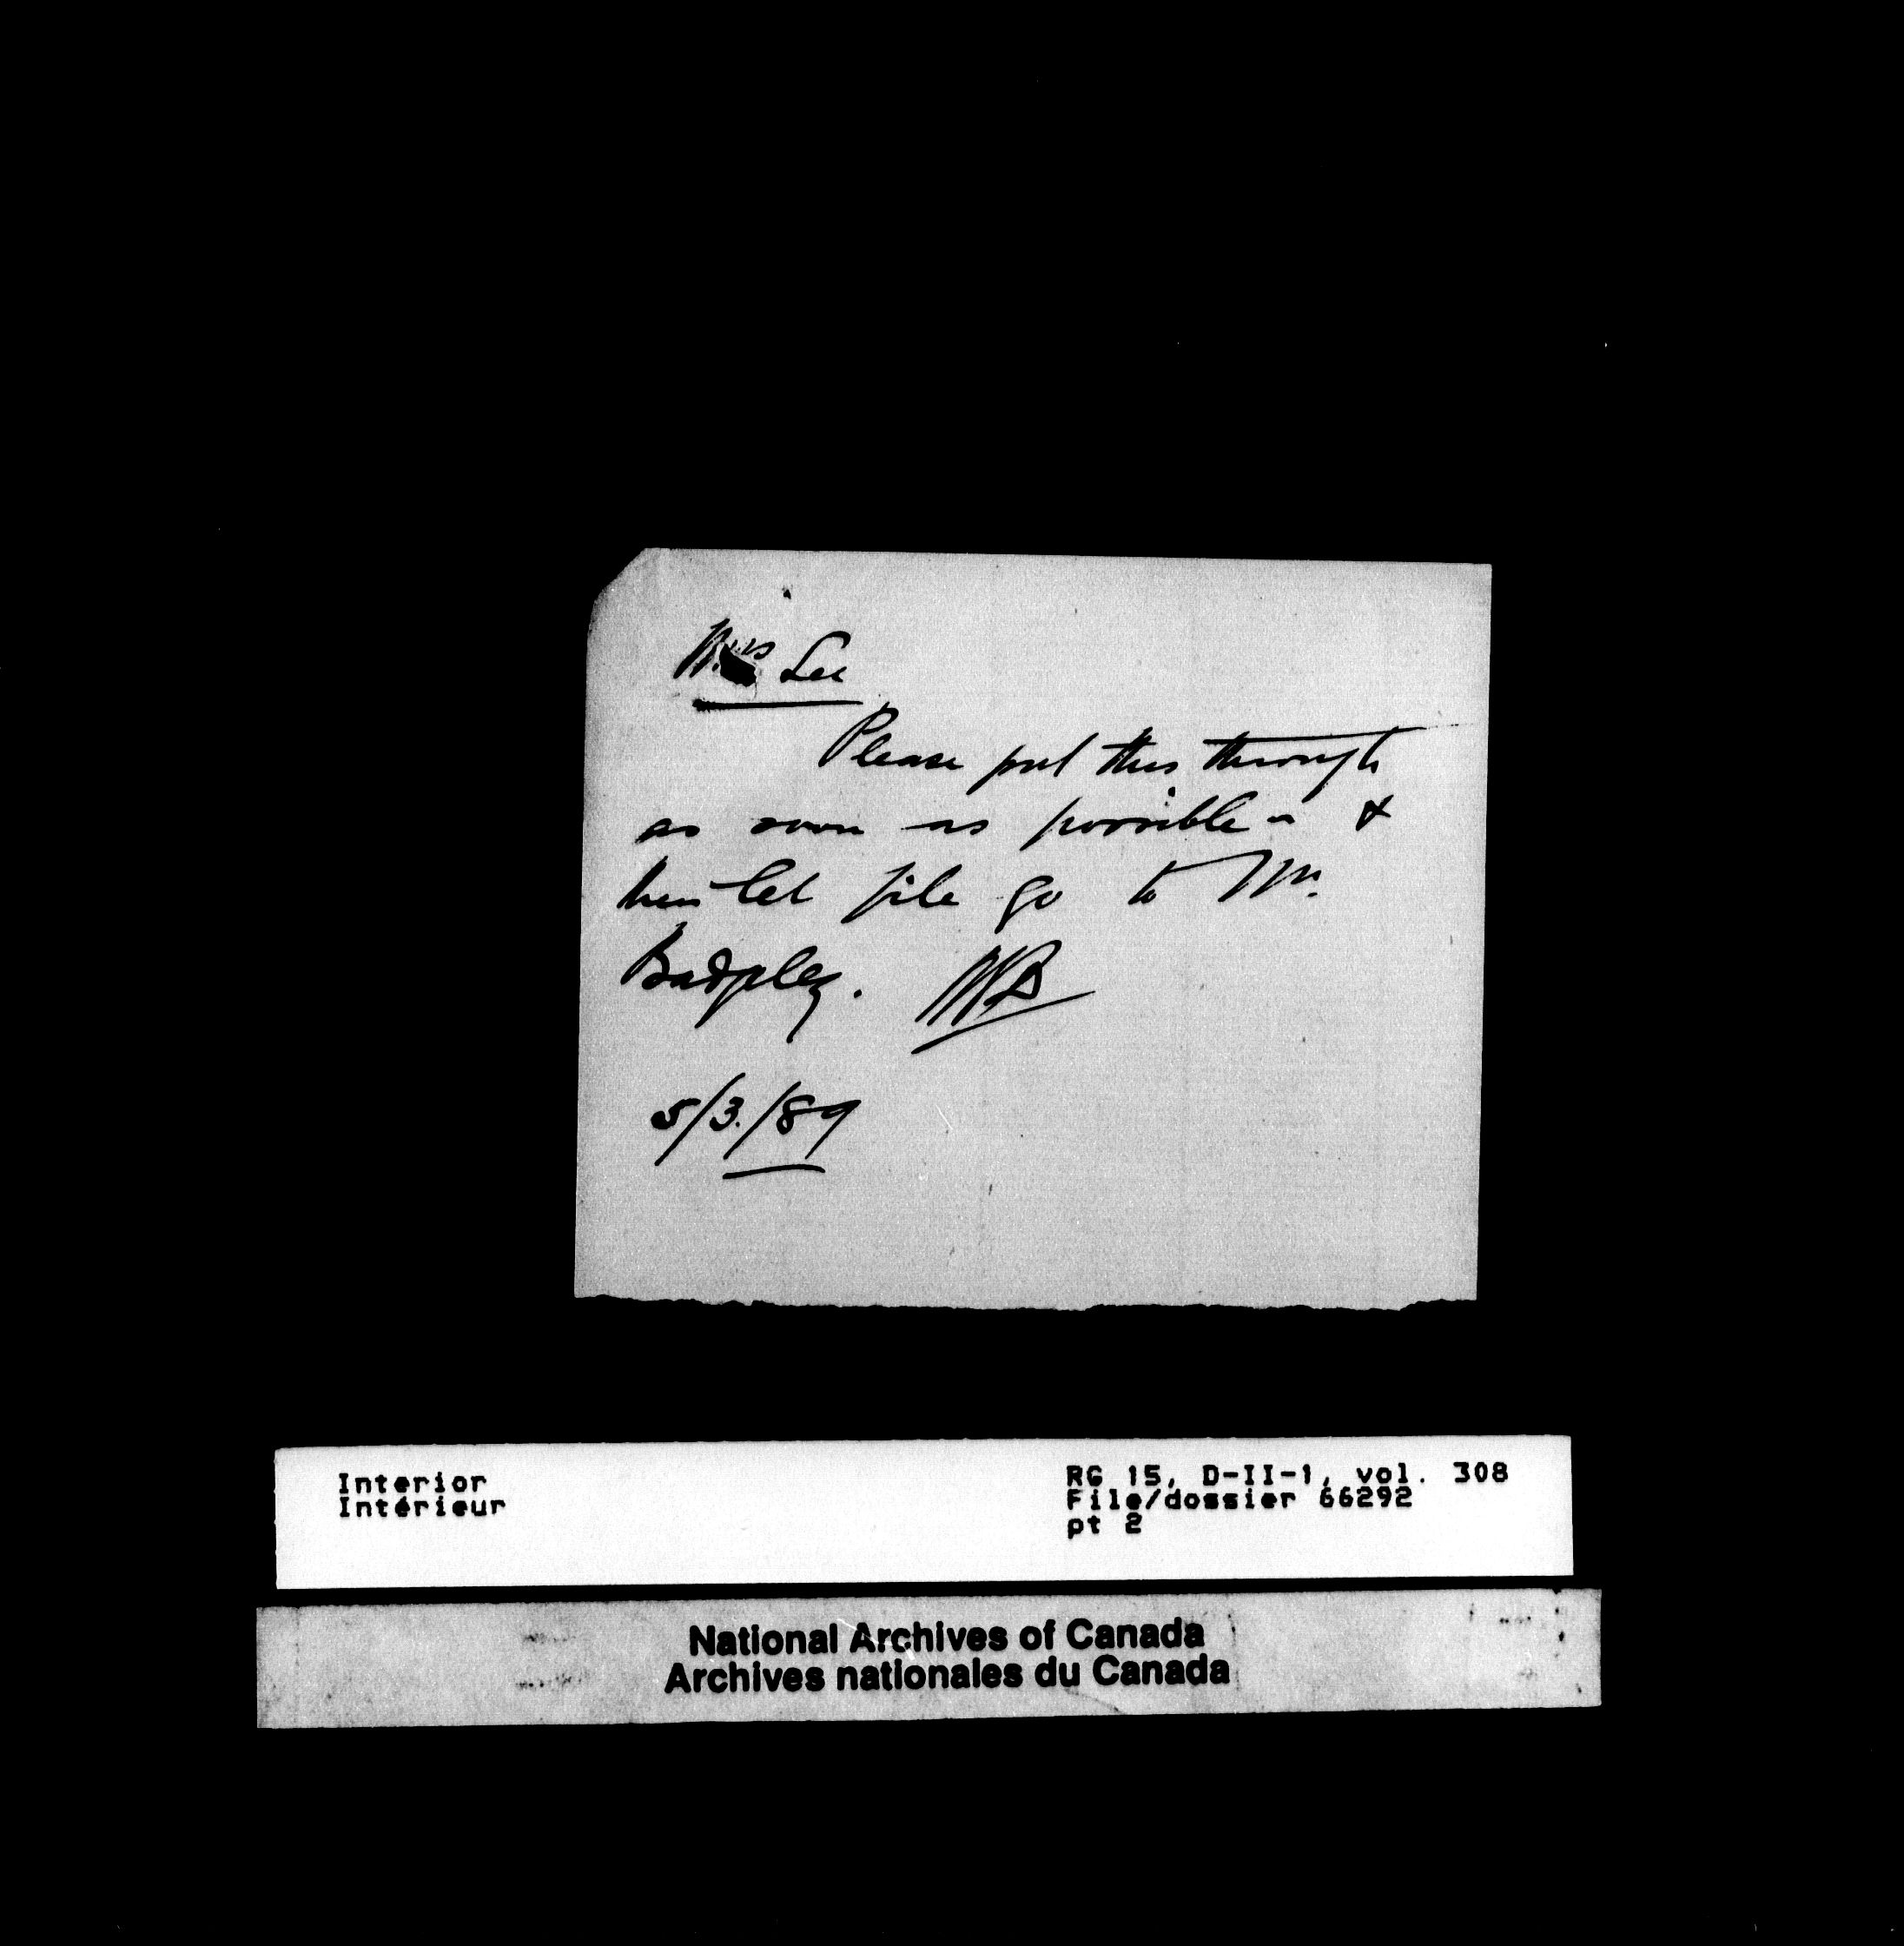 Miss Lee
Please put this through
as soon as possible - &
then let file go to Mr.
Badgley.
5/3./89
Interior
Intérieur
RG 15, D-II-1, vol. 308
File/dossier 66292
pt 2
National Archives of Canada
Archives nationales du Canada